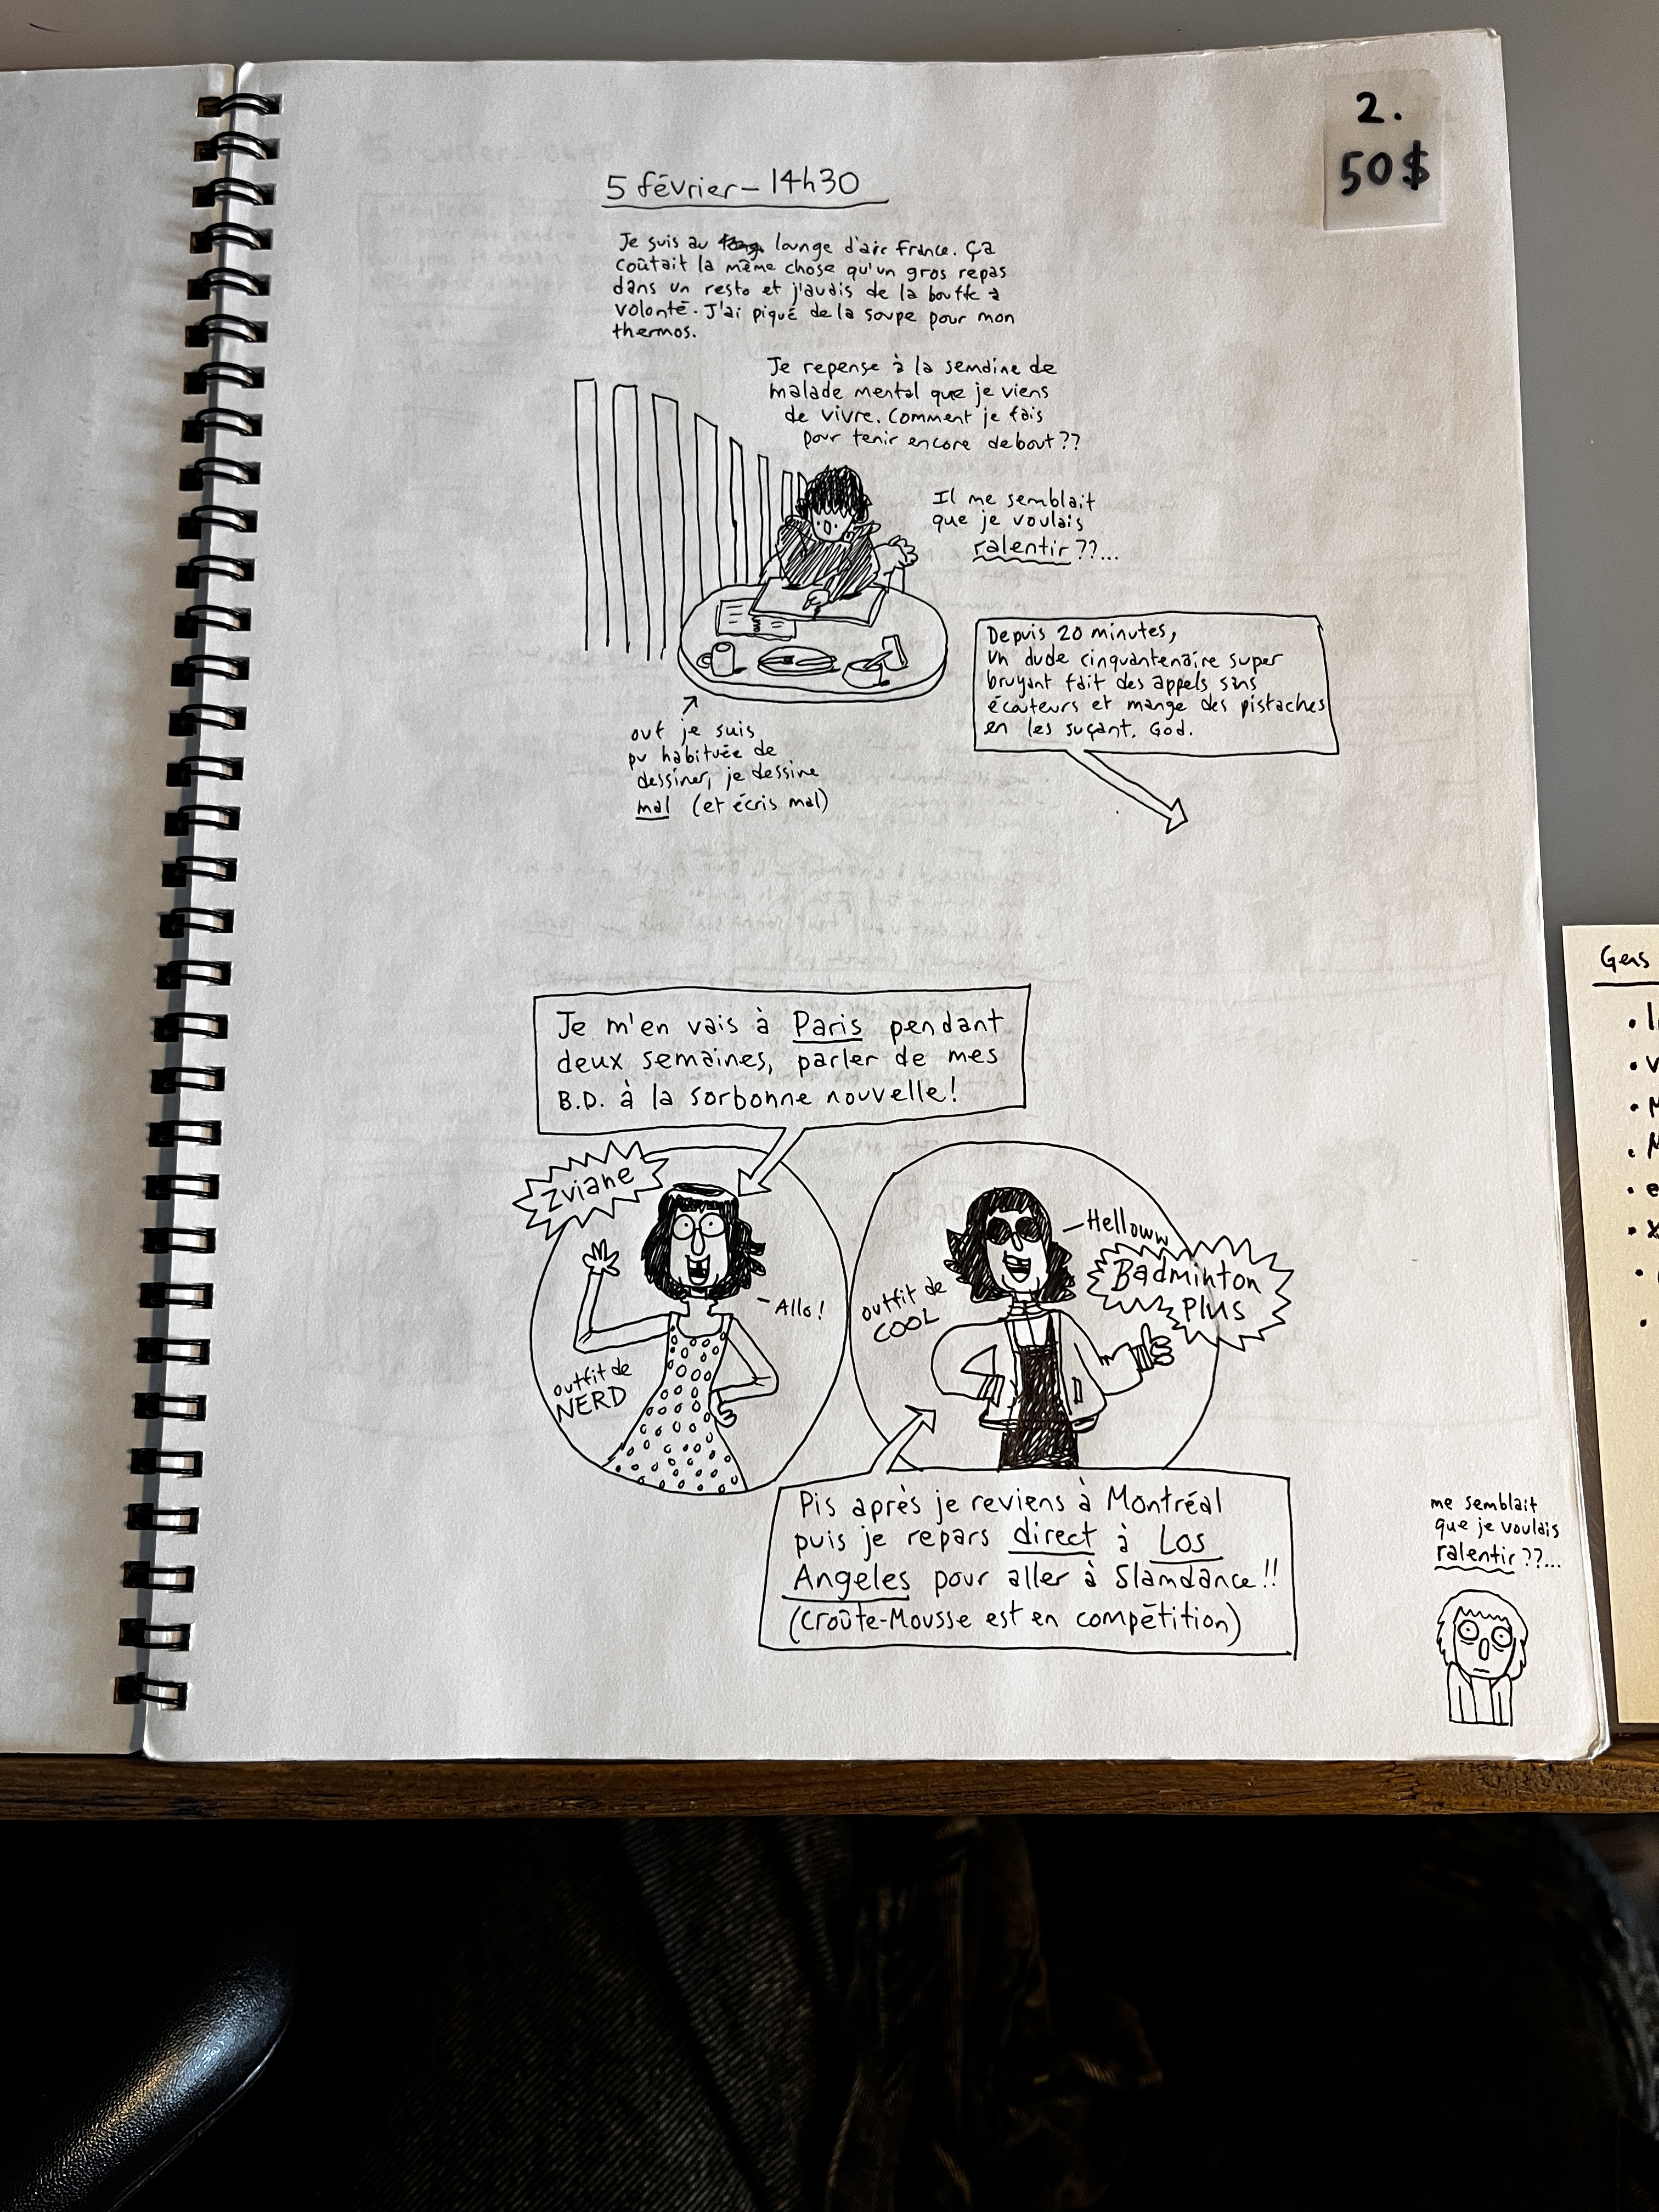 2.
50$
5 février – 14h30
Je suis au lounge d'air France. Ça
coûtait la même chose qu'un gros repas
dans un resto et j'avais de la bouffe à
volonté. J'ai piqué de la soupe pour mon
thermos.
Je repense à la semaine de
malade mental que je viens
de vivre. Comment je fais
pour tenir encore debout??
Il me semblait
que je voulais
ralentir??...
Depuis 20 minutes,
un dude cinquantenaire super
bruyant fait des appels sans
écouteurs et mange des pistaches
en les suçant. God.
ouf je suis
pu habituée de
dessiner, je dessine
mal (et écris mal)
Je m'en vais à Paris pendant
deux semaines, parler de mes
B.D. à la sorbonne nouvelle!
Zviane
- Allo!
outfit de
NERD
- Helloww
Badminton
Plus
outfit de
COOL
Pis après je reviens à Montréal
puis je repars direct à Los
Angeles pour aller à Slamdance!!
(Croûte-Mousse est en compétition)
me semblait
que je voulais
ralentir??...
Gens